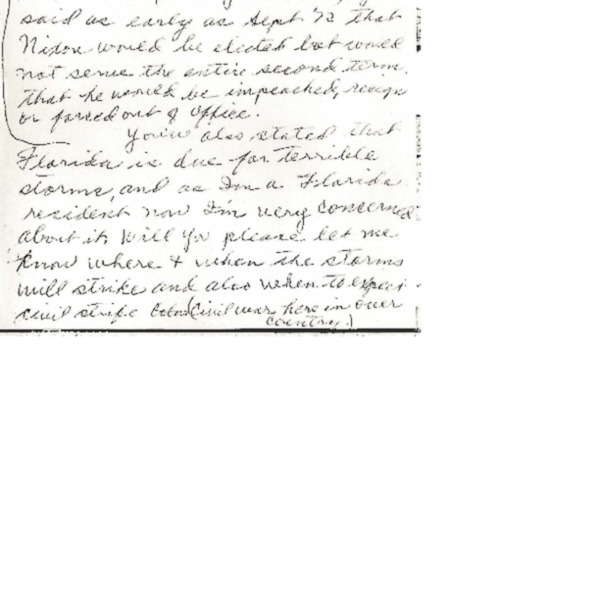 said as early as Sept 72 that
Nixon would be elected but would
not serve the entire second term.
that he would be impeached, resign
or forced out of office.
You've also stated that
Florida is due for terrible
storms, and as I'm a Florida
resident now I'm very concerned
about it. Will you please let me
know where & when the storms
will strike and also when to expect
civil strife (Civil war here in over
country.)